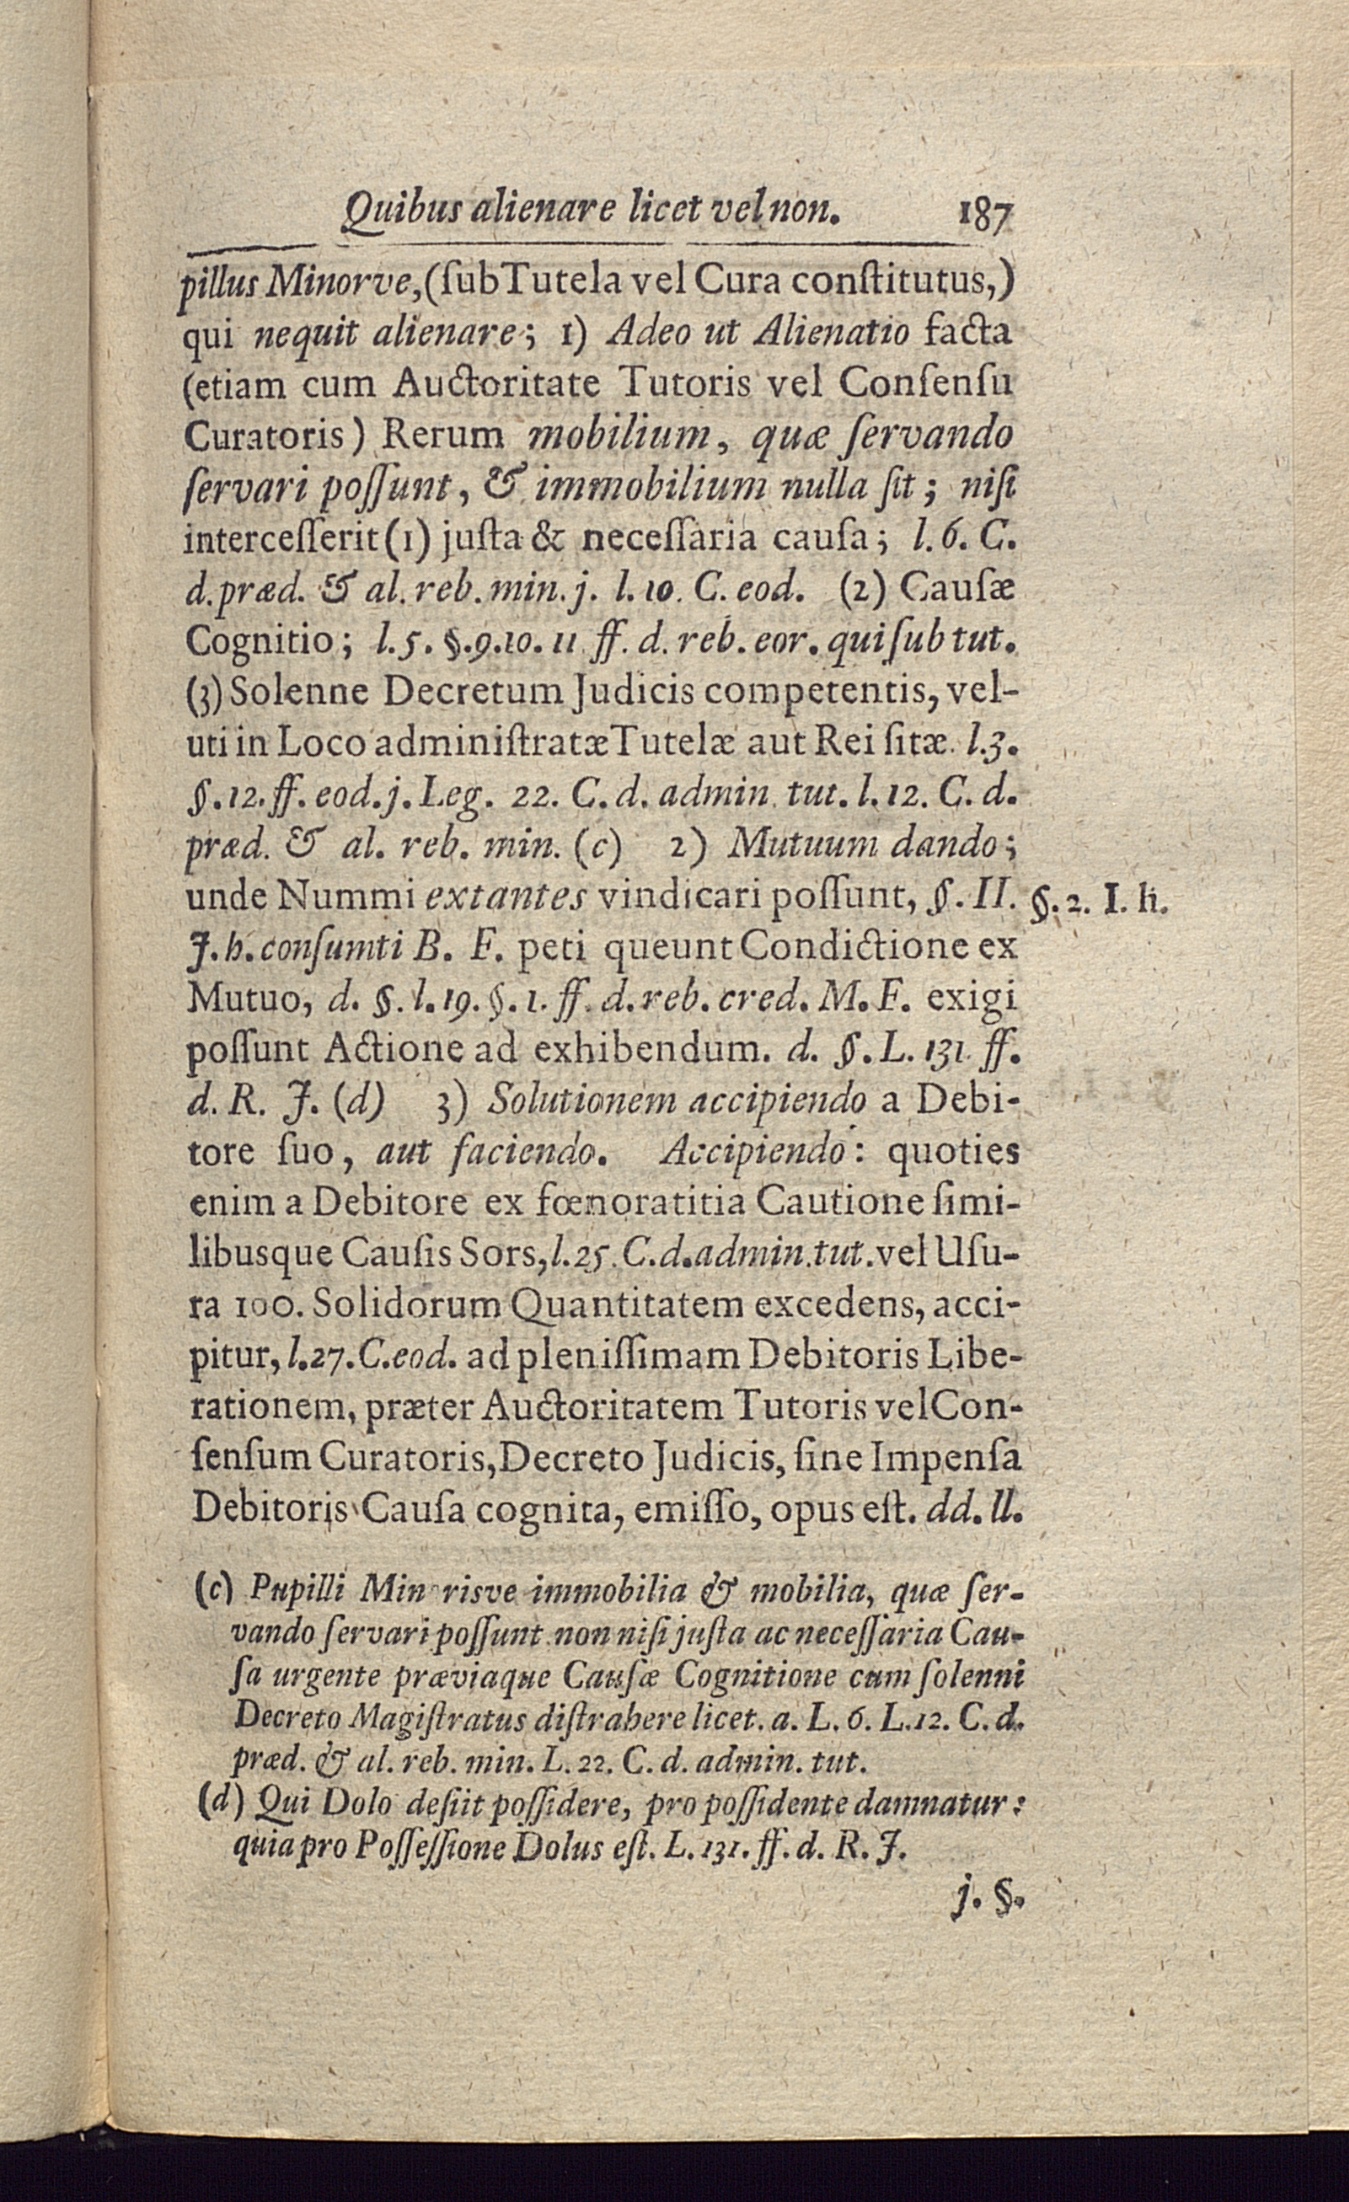 Quibus alienare licet vel non. 187
pillus Minorve, (ſub Tutela vel Cura conſtitutus,)
qui nequit alienare; 1) Adeo ut Alienatio facta
(etiam cum Auctoritate Tutoris vel Conſenſu
Curatoris) Rerum mobilium, quæ ſervando
ſervari poſſunt, & immobilium nulla ſit; niſi
interceſſerit (1) juſta & neceſſaria cauſa; l. 6. C.
d. præd. & al. reb. min. j. l. 10. C. eod. (2) Cauſæ
Cognitio; l. 5. §. 9. 10. 11 ff. d. reb. eor. qui ſub tut.
(3) Solenne Decretum Judicis competentis, vel-
uti in Loco adminiſtratæ Tutelæ aut Rei ſitæ. l. 3.
§. 12. ff. eod. j. Leg. 22. C. d. admin. tut. l. 12. C. d.
præd. & al. reb. min. (c) 2) Mutuum dando;
unde Nummi extantes vindicari poſſunt, §. II. §. 2. I. h.
J. h. conſumti B. F. peti queunt Condictione ex
Mutuo, d. §. l. 19. §. 1. ff. d. reb. cred. M. F. exigi
poſſunt Actione ad exhibendum. d. §. L. 131. ff.
d. R. J. (d) 3) Solutionem accipiendo a Debi-
tore ſuo, aut faciendo. Accipiendo: quoties
enim a Debitore ex fœnoratitia Cautione ſimi-
libusque Cauſis Sors, l. 25. C. d. admin. tut. vel Uſu-
ra 100. Solidorum Quantitatem excedens, acci-
pitur, l. 27. C. eod. ad pleniſſimam Debitoris Libe-
rationem, præter Auctoritatem Tutoris vel Con-
ſenſum Curatoris, Decreto Judicis, ſine Impenſa
Debitoris Cauſa cognita, emiſſo, opus eſt. dd. ll.
(c) Pupilli Min risve immobilia & mobilia, quæ ſer-
vando ſervari poſſunt non niſi juſta ac neceſſaria Cau-
ſa urgente præviaque Cauſæ Cognitione cum ſolenni
Decreto Magiſtratus diſtrahere licet. a. L. 6. L. 12. C. d.
præd. & al. reb. min. L. 22. C. d. admin. tut.
(d) Qui Dolo deſiit poſſidere, pro poſſidente damnatur:
quia pro Poſſeſſione Dolus eſt. L. 131. ff. d. R. J.
j. §.